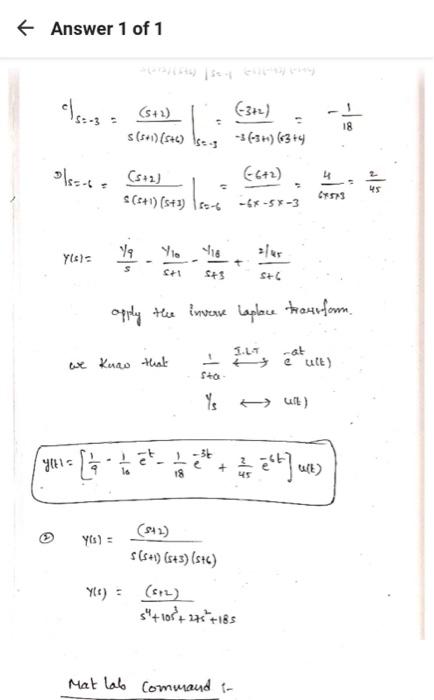 ← Answer 1 of 1
c|s=-3 = (s+2) / s(s+1)(s+6) |s=-3 = (-3+2) / -3(-3+1)(-3+4) = -1/18
D|s=-6 = (s+2) / s(s+1)(s+3) |s=-6 = (-6+2) / -6x-5x-3 = 4 / 6x5x3 = 2/45
Y(s) = 1/9 / s - 1/10 / s+1 - 1/18 / s+3 + 2/45 / s+6
apply the inverse laplace transform.
we know that 1 / s+a ⟷ I.L.T e^-at u(t)
1/s ⟷ u(t)
y(t) = [1/9 - 1/10 e^-t - 1/18 e^-3t + 2/45 e^-6t] u(t)
② Y(s) = (s+2) / s(s+1)(s+3)(s+6)
Y(s) = (s+2) / s^4+10s^3+27s^2+18s
Mat lab Command :-